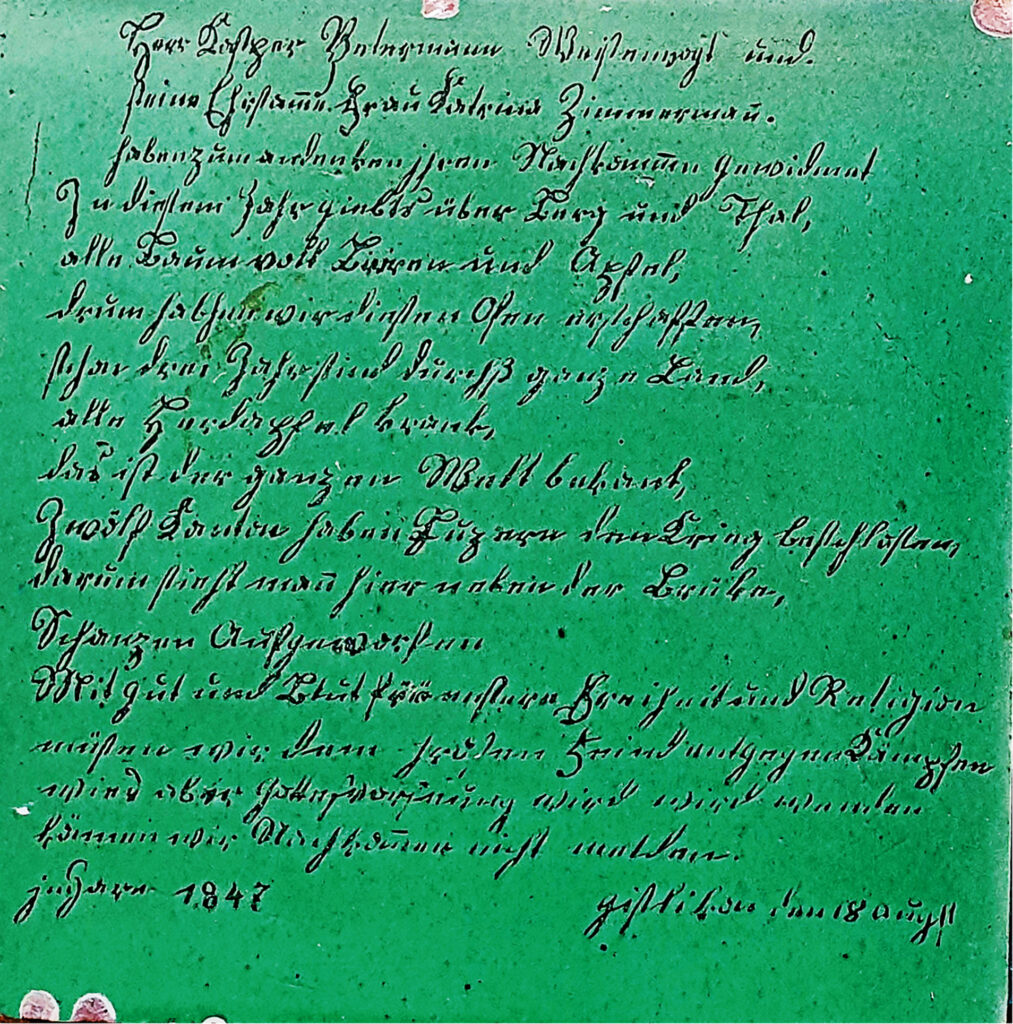 Herr Kasper Petermann Weisenvogt und.
seine Ehrsamme Frau Katrina Zimmermañ.
haben zum andenken jhren Nachkom̄en gewidmet
In diesem Jahr giebts über Berg und Thal,
alle Baum voll Birren und Apfel,
drum habhen wir diesen Ofen erschaffen,
schon drei Jahr sind durchß ganze Land,
alle Herdapfel krank,
das ist der ganzen Welt bekant,
Zwölf Kanton haben Luzern den Krieg beschlosen,
darum sieht mañ hier neben der Brüke,
Schanzen Aufgeworfen
Mit gut und Blut für unsere Freiheit und Religion
müsen wir dem Feind entgegen Kämpfen
wies aber gottesvorsehung wird wenden
könen wir Nachkom̄en nicht melden.
jm Hare 1847 gislikon den 18 Augst